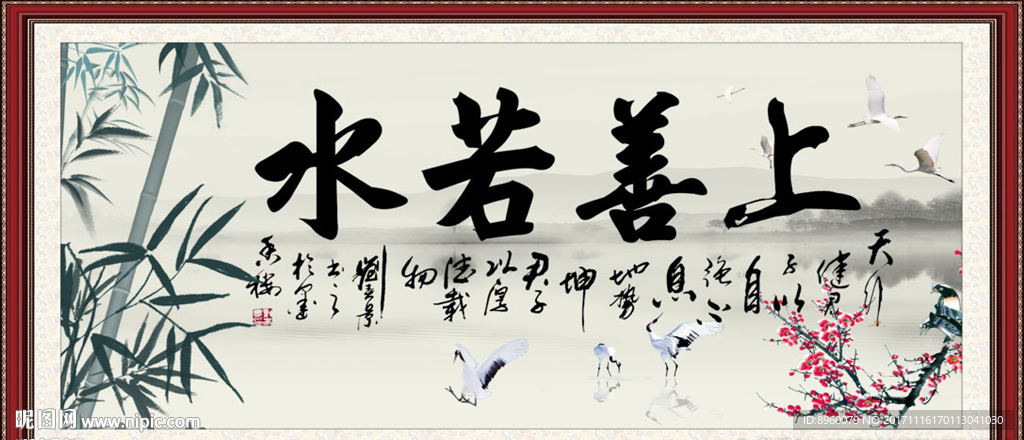 上善若水
天行
健君
子以
自
强不
息
地势
坤
君子
以厚
德载
物
刘景
书之
于墨
昵图网 www.nipic.com
ID:8960079 NO:20171116170113041030